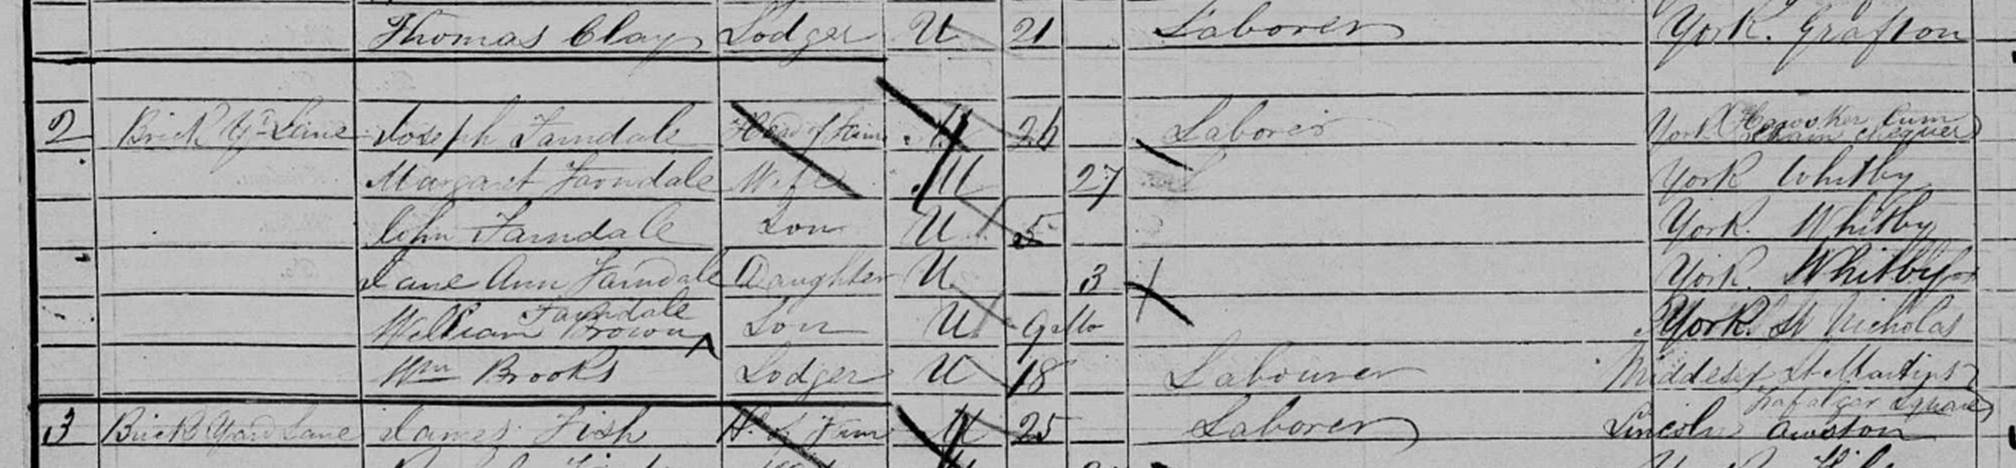 Thomas Clay Lodger U 21 Laborer York. Grafton
2 Brick Yd Lane Joseph Farndale Head of Fam M 26 Laborer York Hawsker Cum
Margaret Farndale Wife M 27 York Whitby
John Farndale Son U 5 York. Whitby
Jane Ann Farndale Daughter U 3 York. Whitby
Farndale
William Brown Son U 9 Mo York. St Nicholas
Wm Brooks Lodger U 18 Labourer Middesex St Martins
Trafalgar Square
3 Brick Yard Lane James Fish H. of Fam M 25 Laborer Lincoln